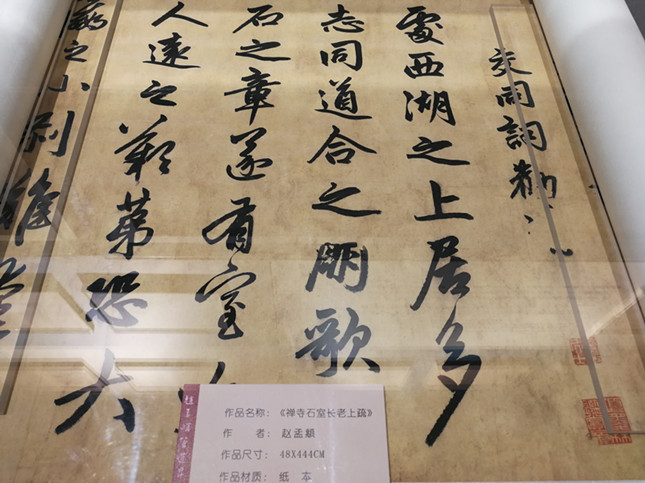 交同詞勸
處西湖之上居多
志同道合之朋歌
石之章遂有室
人遠之歎第恐六
之小刹難
作品名称：《禅寺石室长老上疏》
作　　者：赵孟頫
作品尺寸：48X444CM
作品材质：纸　本